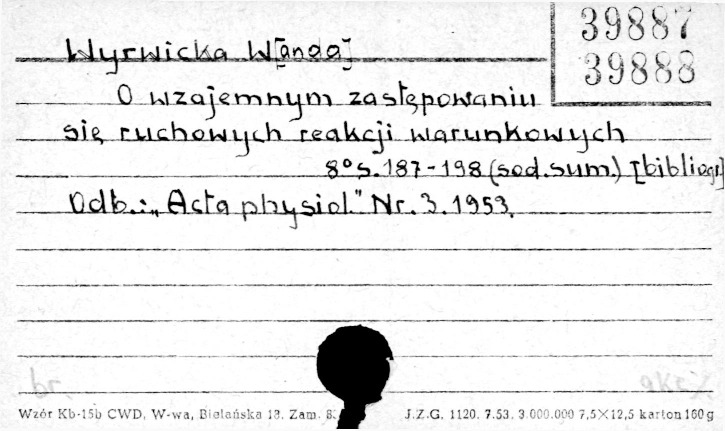 39887
39888
Wyrwicka W[anda]
O wzajemnym zastępowaniu
się ruchowych reakcji warunkowych
8° s. 187-198 (sod. sum.) [bibliogr]
Odb.: „Acta physiol." Nr. 3. 1953.
br.
Wzór Kb-15b CWD, W-wa, Bielańska 18. Zam. 8 J.Z.G. 1120. 7.53. 3.000.000 7,5×12,5 karton 160 g